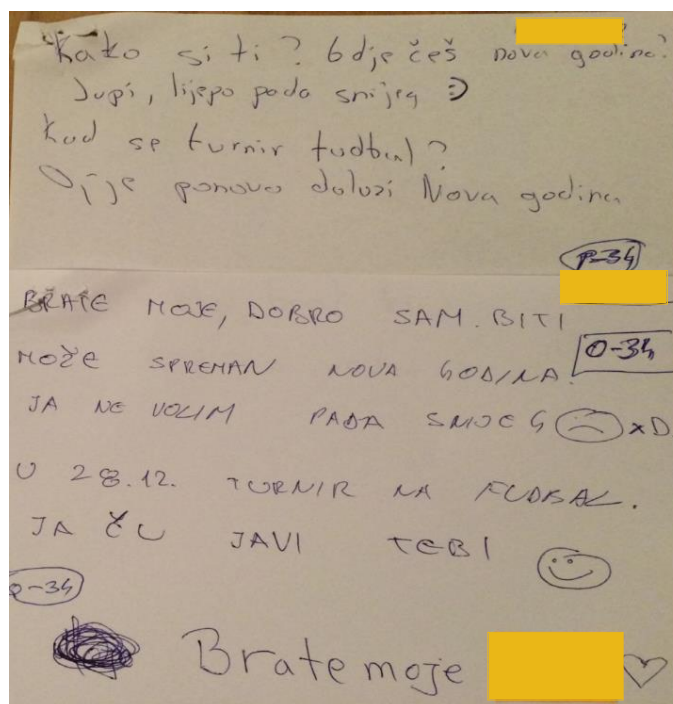 Kako si ti? Gdje češ nova godina?
Jupi, lijepo pada snijeg :)
Kad se turnir fudbal?
ponovo dolazi Nova godina
P-34
BRATE MOJE, DOBRO SAM. BITI
MOŽE SPREMAN NOVA GODINA.
O-34
JA NE VOLIM PADA SNIJEG xD
U 28.12. TURNIR NA FUDBAL.
JA ČU JAVI TEBI
P-34
Brate moje